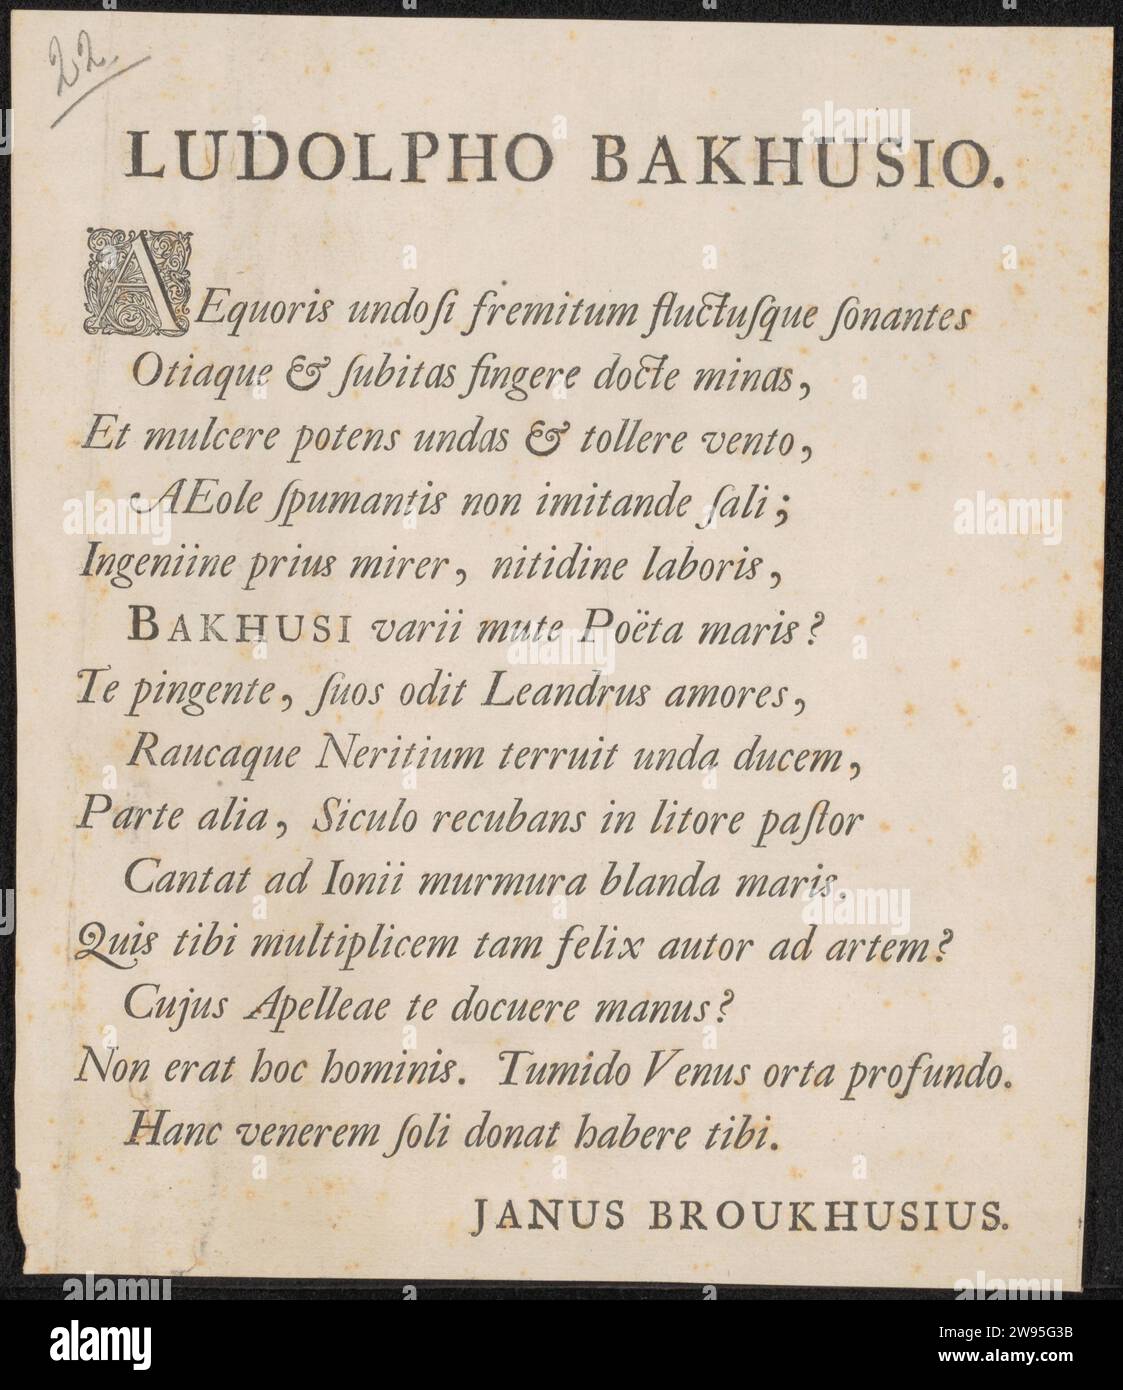 22.
LUDOLPHO BAKHUSIO.
AEquoris undoſi fremitum fluctuſque ſonantes
Otiaque & ſubitas fingere docte minas,
Et mulcere potens undas & tollere vento,
AEole ſpumantis non imitande ſali;
Ingeniine prius mirer, nitidine laboris,
BAKHUSI varii mute Poëta maris?
Te pingente, ſuos odit Leandrus amores,
Raucaque Neritium terruit unda ducem,
Parte alia, Siculo recubans in litore paſtor
Cantat ad Ionii murmura blanda maris.
Quis tibi multiplicem tam felix autor ad artem?
Cujus Apelleae te docuere manus?
Non erat hoc hominis. Tumido Venus orta profundo.
Hanc venerem ſoli donat habere tibi.
JANUS BROUKHUSIUS.
alamy
Image ID: 2W95G3B
www.alamy.com